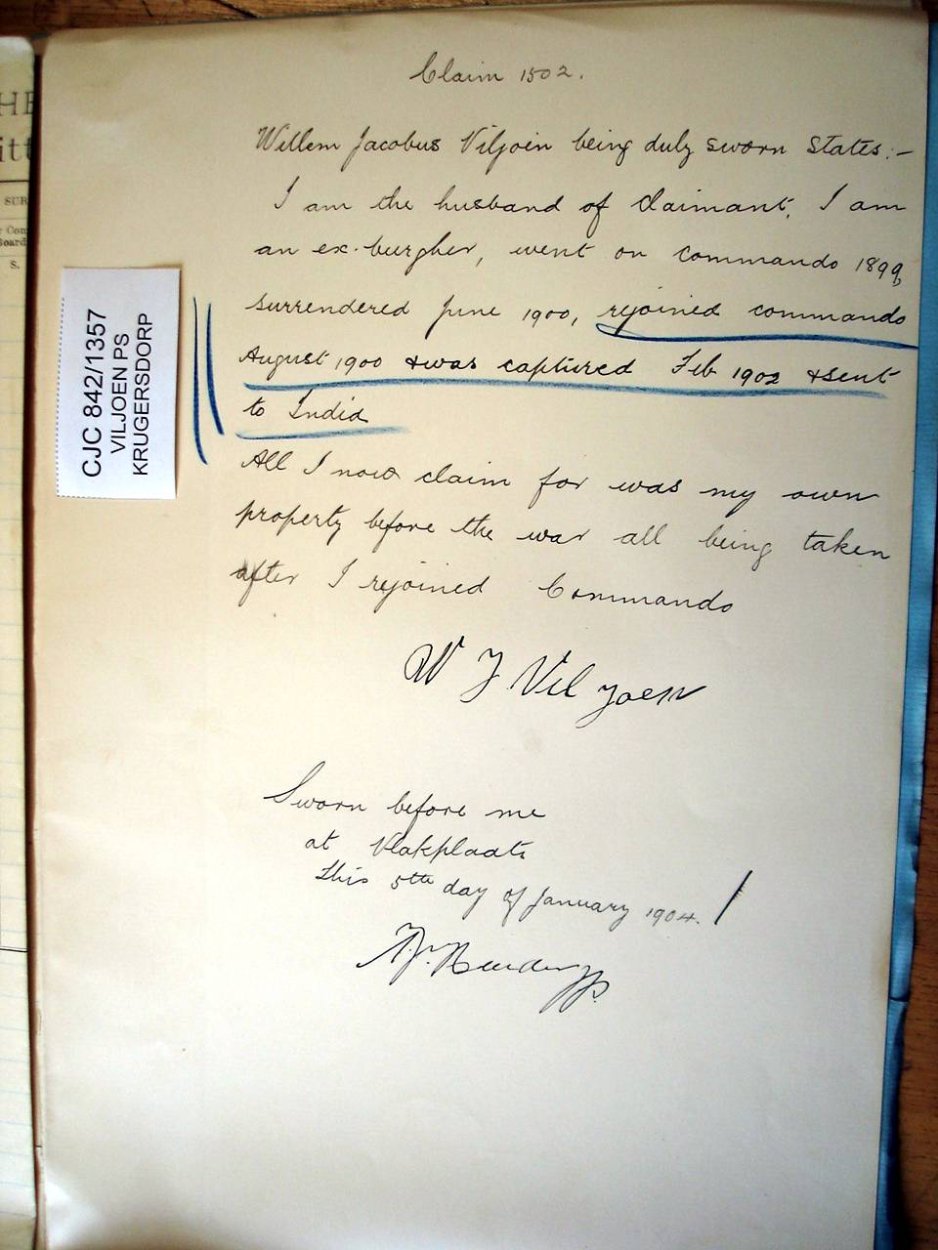 HE
itt
SUB
Board
S.
CJC 842/1357
VILJOEN PS
KRUGERSDORP
Claim 1502.
Willem Jacobus Viljoen being duly sworn States:-
I am the husband of Claimant. I am
an ex-burgher, went on Commando 1899,
surrendered June 1900, rejoined commando
August 1900 & was captured Feb 1902 & sent
to India
All I now claim for was my own
property before the war all being taken
after I rejoined Commando
W J Viljoen
Sworn before me
at Vlakplaats
this 5th day of January 1904.